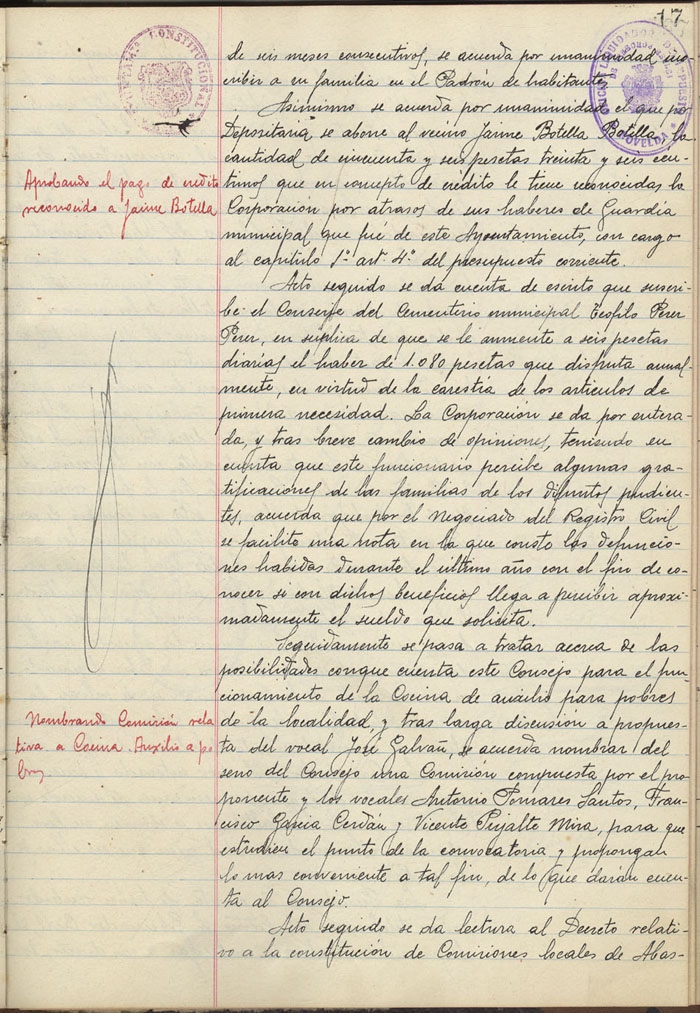 17
AYUNTAMTO CONSTITUCIONAL
NOVELDA
de seis meses consecutivos, se acuerda por unanimidad ins-
cribir a su familia en el Padrón de habitantes.
Asimismo se acuerda por unanimidad el que por
Depositaria se abone al vecino Jaime Botella Botella, la
cantidad de cincuenta y seis pesetas treinta y seis cen-
timos que en concepto de crédito le tiene reconocidas la
Corporación por atrasos de sus haberes de Guardia
municipal que fué de este Ayuntamiento, con cargo
al capitulo 1º art. 4º del presupuesto corriente.
Aprobando el pago de credito
reconocido a Jaime Botella
Acto seguido se da cuenta de escrito que suscri-
be el Conserje del Cementerio municipal Teofilo Perez
Perez, en suplica de que se le aumente a seis pesetas
diarias el haber de 1.080 pesetas que disfruta anual-
mente, en virtud de la carestia de los articulos de
primera necesidad. La Corporación se da por entera-
da, y tras breve cambio de opiniones, teniendo en
cuenta que este funcionario percibe algunas gra-
tificaciones de las familias de los difuntos pudien-
tes, acuerda que por el Negociado del Registro Civil
se facilite una nota en la que conste las defuncio-
nes habidas durante el último año con el fin de co-
nocer si con dichos beneficios llega a percibir aproxi-
madamente el sueldo que solicita.
Seguidamente se pasa a tratar acerca de las
posibilidades conque cuenta este Consejo para el fun-
cionamiento de la Cocina de auxilio para pobres
de la localidad, y tras larga discusión a propues-
ta del vocal José Galvañ, se acuerda nombrar del
seno del Consejo una Comisión compuesta por el pro-
ponente y los vocales Antonio Pomares Santos, Fran-
cisco Garcia Cerdán y Vicente Pujalte Mira, para que
estudien el punto de la convocatoria y propongan
lo mas conveniente a tal fin, de lo que darán cuen-
ta al Consejo.
Nombrando Comisión rela-
tiva a Cocina Auxilio a po-
bres
Acto seguido se da lectura al Decreto relati-
vo a la constitución de Comisiones locales de Abas-